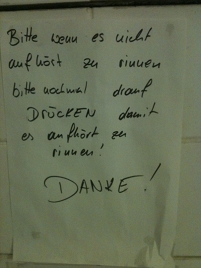 Bitte wenn es nicht
aufhört zu rinnen
bitte nochmal drauf
DRÜCKEN damit
es aufhört zu
rinnen!
DANKE!